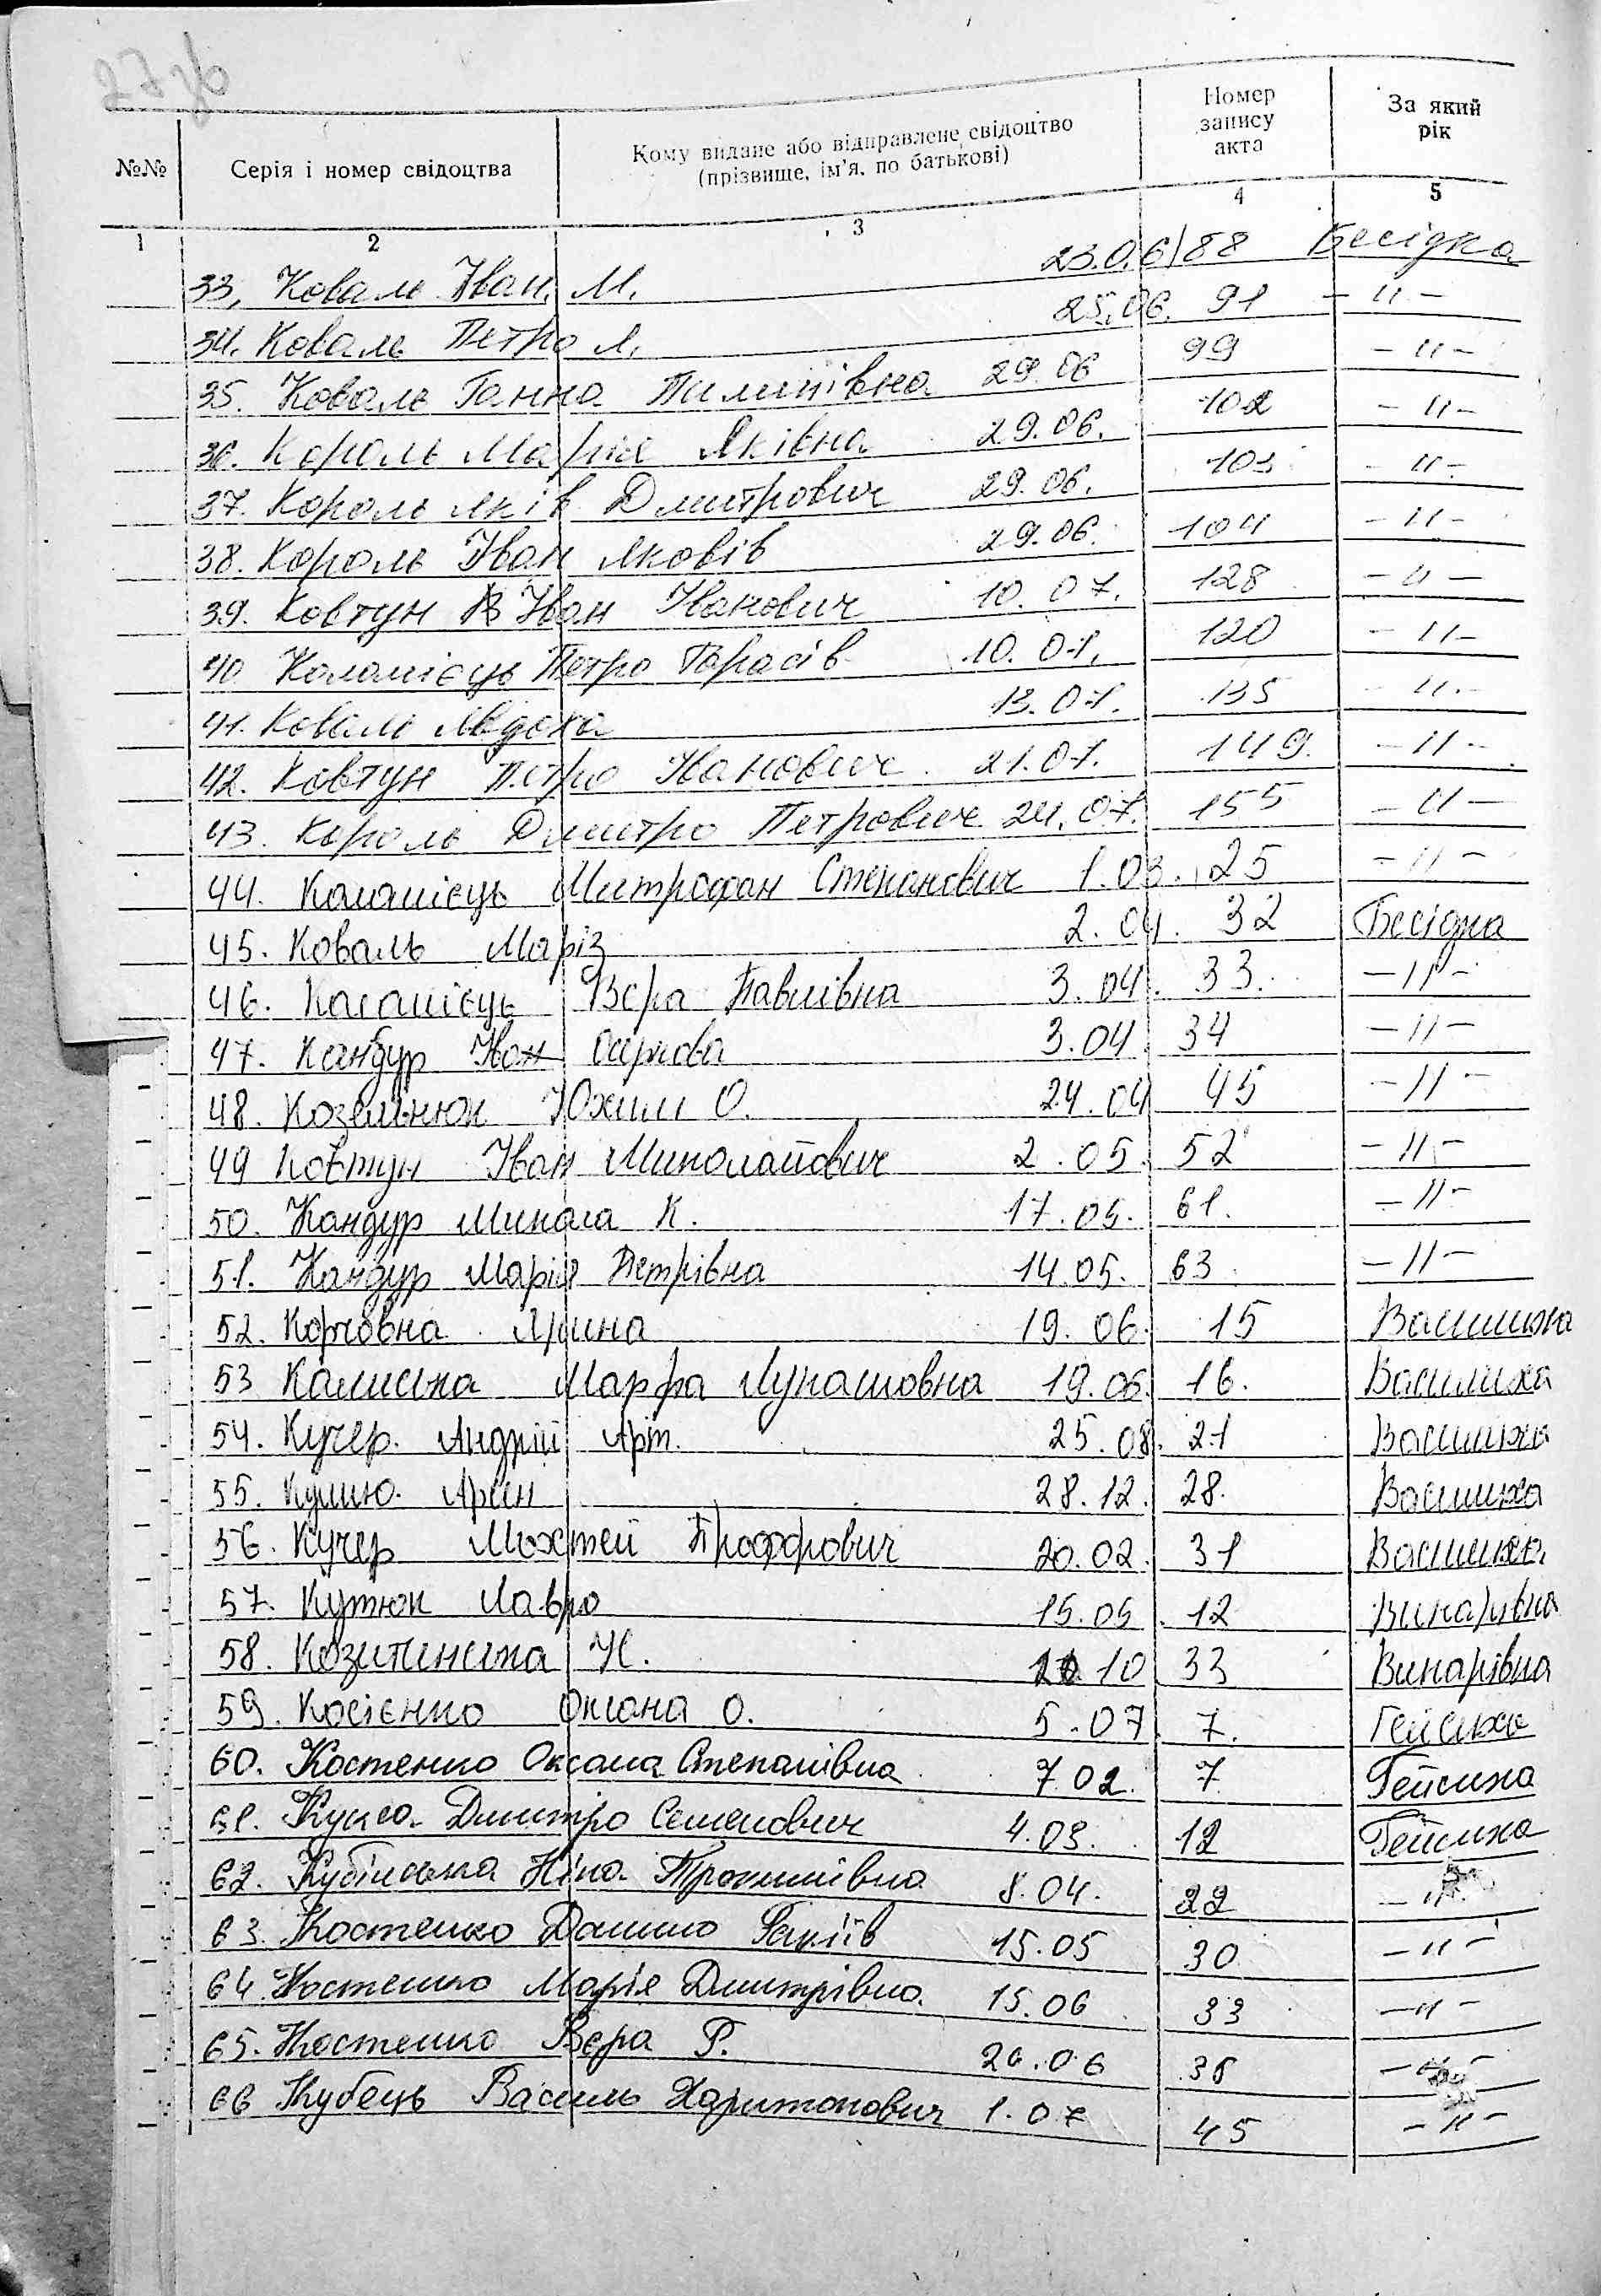 27 зв
№№ Серія і номер свідоцтва Кому видане або відправлене свідоцтво (прізвище, ім'я, по батькові) Номер запису акта За який рік
1 2 3 4 5
33, Коваль Іван М. 23.06/88 Бесідка
34. Коваль Петро Л. 25.06. 91 -11-
35. Коваль Ганна Пилипівна 29.06 99 -11-
36. Король Марія Яківна 29.06. 102 -11-
37. Король Яків Дмитрович 29.06. 103 -11-
38. Король Іван Яковів 29.06. 104 -11-
39. Ковтун Іван Іванович 10.07. 128 -11-
40 Коломієць Петро Тарасів 10.07. 120 -11-
41. Коваль Явдоха 13.07. 135 -11-
42. Ковтун Петро Іванович 21.07. 149. -11-
43. Король Дмитро Петрович 24.07. 155 -11-
44. Коломієць Митрофан Степанович 1.03. 25 -11-
45. Коваль Маріз 2.04. 32 Бесідка
46. Коломієць Вєра Павлівна 3.04. 33. -11-
47. Кандур Іван 3.04 34 -11-
48. Козельнюк Юхим О. 24.04 45 -11-
49 Ковтун Іван Миколайович 2.05. 52 -11-
50. Кандур Микола К. 17.05. 61. -11-
51. Кандур Марія Петрівна 14.05. 63. -11-
52. Корчовна Ярина 19.06. 15 Василиха
53 Калиська Марфа Лукашовна 19.06. 16. Василиха
54. Кучер. Андрій Арт. 25.08. 21 Василиха
55. 28.12. 28. Василиха
56. Кучер 20.02. 31 Василиха
57. Кутюк Лавро 15.05. 12 Винарівка
58. Н. 10 33 Винарівка
59. Косієнко Оксана О. 5.07. 7. Гейсиха
60. Костенко Оксана Степанівна 7.02. 7 Гейсиха
61. Кукса Дмитро Семенович 4.03. 12 Гейсиха
62. Кубінська Ніна Трохимівна 8.04. 22 -11-
63. Костенко Данило 15.05 30 -11-
64. Костенко Марія Дмитрівна. 15.06 33 -11-
65. Костенко Вєра Р. 26.06 38 -11-
66 Кубець Василь Харитонович 1.07 45 -11-